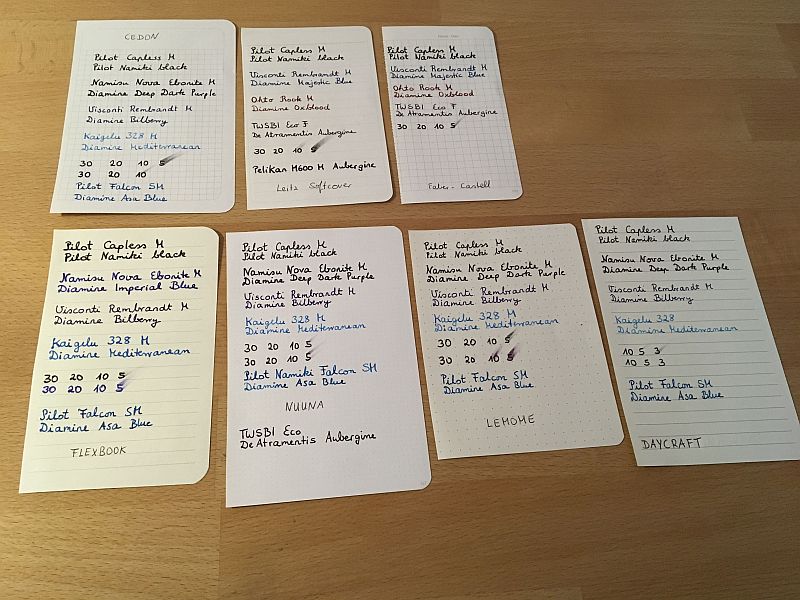 CEDON
Pilot Capless M
Pilot Namiki black
Namisu Nova Ebonite M
Diamine Deep Dark Purple
Visconti Rembrandt M
Diamine Bilberry
Kaigelu 328 M
Diamine Mediterranean
30 20 10 5
30 20 10
Pilot Falcon SM
Diamine Asa Blue
Pilot Capless M
Pilot Namiki black
Visconti Rembrandt M
Diamine Majestic Blue
Ohto Rook M
Diamine Oxblood
TWSBI Eco F
De Atramentis Aubergine
30 20 10 5
Pelikan M600 M Aubergine
Leitz Softcover
Pilot Capless M
Pilot Namiki black
Visconti Rembrandt M
Diamine Majestic Blue
Ohto Rook M
Diamine Oxblood
TWSBI Eco F
De Atramentis Aubergine
30 20 10 5
Faber-Castell
Pilot Capless M
Pilot Namiki black
Namisu Nova Ebonite M
Diamine Imperial Blue
Visconti Rembrandt M
Diamine Bilberry
Kaigelu 328 M
Diamine Mediterranean
30 20 10 5
30 20 10 5
Pilot Falcon SM
Diamine Asa Blue
FLEXBOOK
Pilot Capless M
Pilot Namiki black
Namisu Nova Ebonite M
Diamine Deep Dark Purple
Visconti Rembrandt M
Diamine Bilberry
Kaigelu 328 M
Diamine Mediterranean
30 20 10 5
30 20 10 5
Pilot Namiki Falcon SM
Diamine Asa Blue
NUUNA
TWSBI Eco
De Atramentis Aubergine
Pilot Capless M
Pilot Namiki black
Namisu Nova Ebonite M
Diamine Deep Dark Purple
Visconti Rembrandt M
Diamine Bilberry
Kaigelu 328 M
Diamine Mediterranean
30 20 10 5
30 20 10 5
Pilot Falcon SM
Diamine Asa Blue
LEMOME
Pilot Capless M
Pilot Namiki black
Namisu Nova Ebonite M
Diamine Deep Dark Purple
Visconti Rembrandt M
Diamine Bilberry
Kaigelu 328
Diamine Mediterranean
10 5 3
10 5 3
Pilot Falcon SM
Diamine Asa Blue
DAYCRAFT